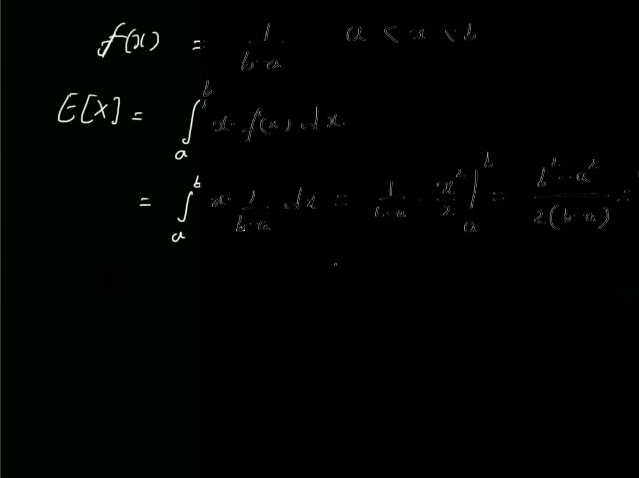 f(x) = 1/(b-a) a < x < b
E[X] = ∫_a^b x·f(x) dx
= ∫_a^b x·1/(b-a) dx = 1/(b-a) · x²/2 |_a^b = (b²-a²)/(2(b-a)) =